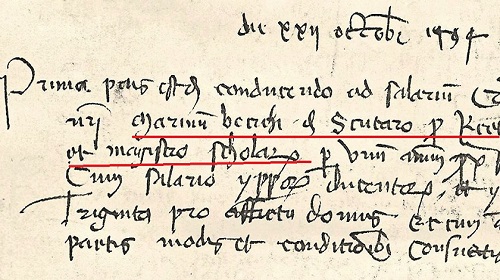 die xxii octobr 1494
Prima pars est d conducendo ad salariū Co
nri Marinū becichi d Scutaro p Rect
et magistro scholar p vnū annū
Cum salario ypporor ducentor et
Triginta pro affictu domus et cum
partis modis et conditioīb Consueti